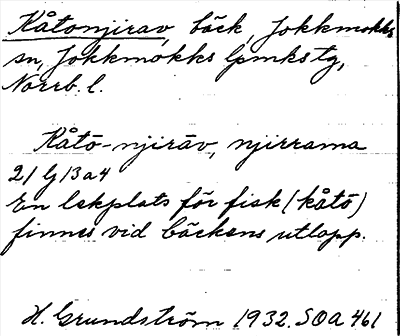 Kåtonjirav, bäck, Jokkmokks
sn, Jokkmokks lpmkstg,
Norrb. l.
Kåtō-njirāv, njirrama
21 G/3a4
En lekplats för fisk (kåtō)
finnes vid bäckens utlopp.
H. Grundström 1932. SOA 461